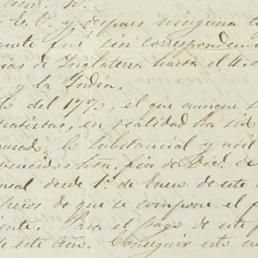 V. E. y despues ninguna
ente fué sin correspondenc
ias de Inglaterra hasta el 4.
y la India.
del 1770, el que aunque
atistas, en realidad ha sid
lo substancial y util
fin de Dic.e de
desde 1.º de Enero de este
de que se compone el f
iente. Para el pago de este
de este año. Conseguir esto